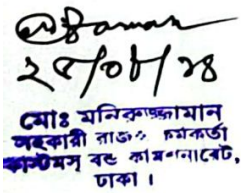 ২৫/০৮/২৪
মোঃ মনিরুজ্জামান
সহকারী রাজস্ব কর্মকর্তা
কাস্টমস্ বন্ড কমিশনারেট,
ঢাকা ।